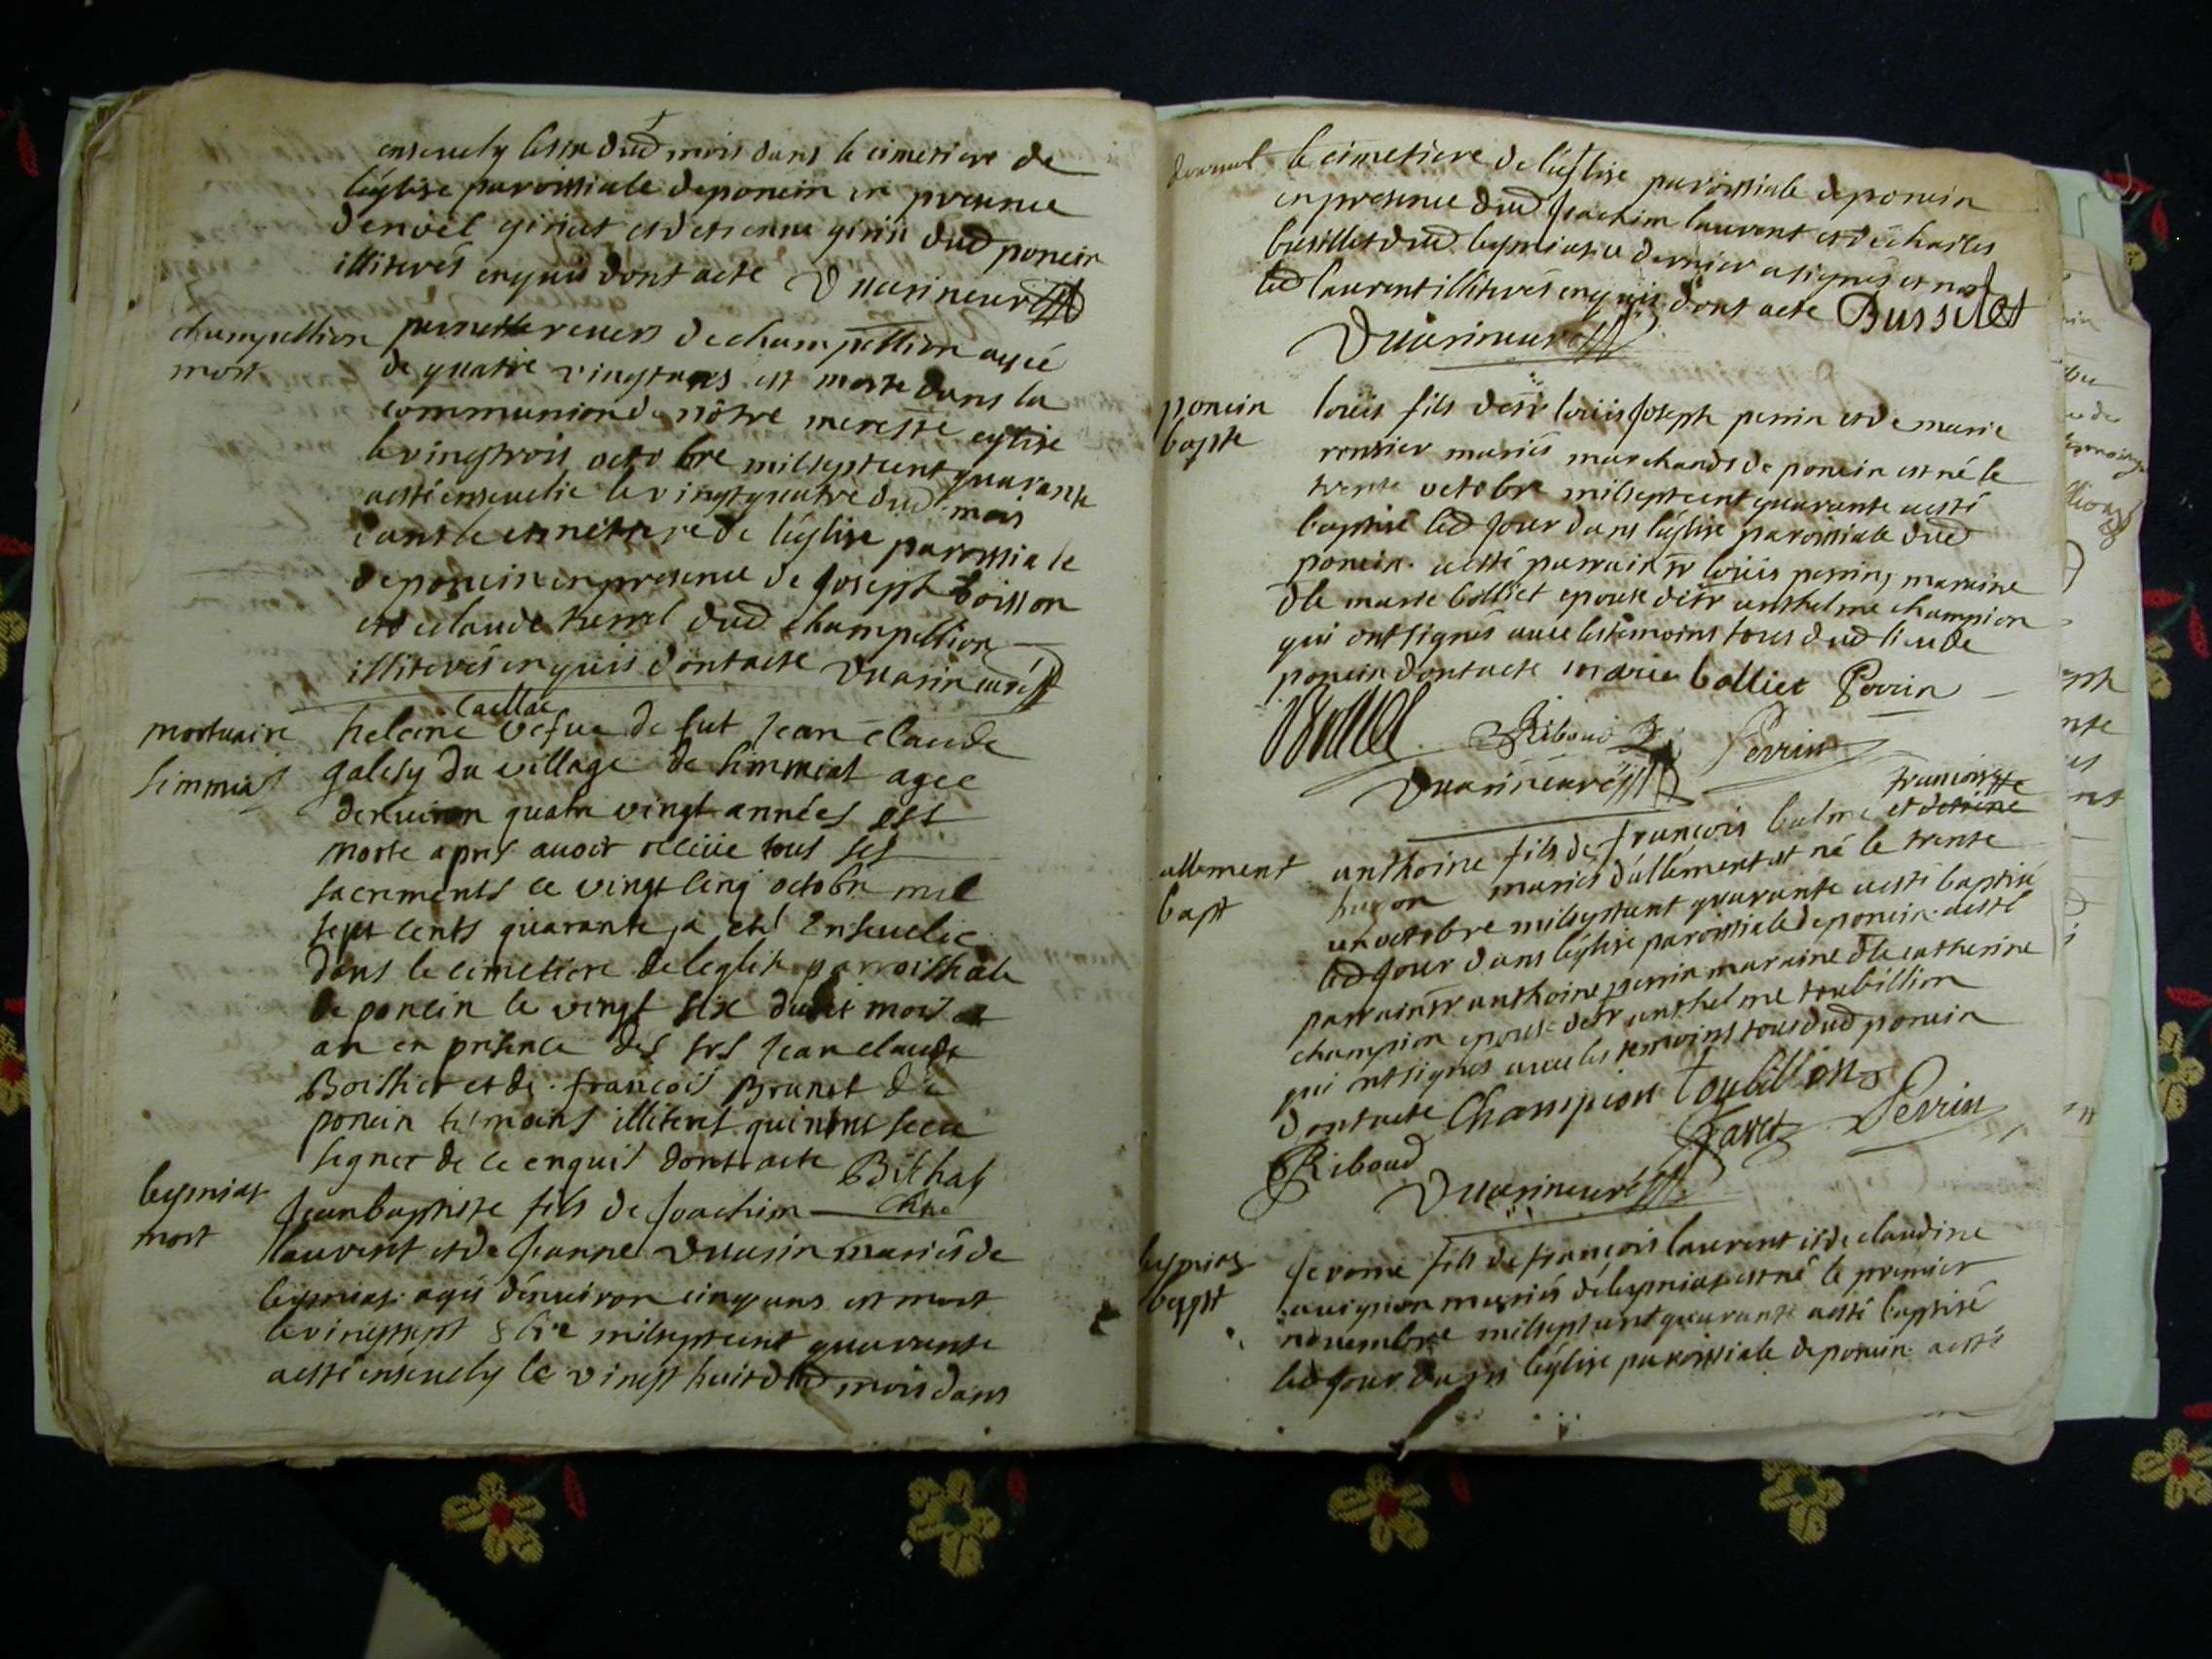 ensevely le six dud mois dans le cimetiere de
l'église paroissiale de poncin en presence
de noël giriat et d'etienne girin dud poncin
illiterés enquis dont acte Duarin curé
champellion mort
pernette revers de champellion agée
de quatre vingt ans est morte dans la
communion de nôtre mere ste eglise
le vingt trois octobre mil sept cent quarante
a esté ensevelie le vingt quatre dud mois
dans le cimetiere de l'église paroissiale
de poncin en presence de joseph boisson
et de claude du dud champellion
illiterés enquis dont acte Duarin curé
mortuaire simmiat
heleine caillat vefue de fut jean claude
galesy du village de simmiat agee
denviron quatre vingt années est
morte apres avoir recüe tous ses
sacrements ce vingt cinq octobre mil
sept cents quarante, a eté Ensevelie
dans le cimetiere de leglise parroissiale
de poncin le vingt six dudit mois et
an en présence des srs jean claude
Boissier et de françois Brunet de
poncin témoins illiteres qui nont sceu
signer de ce enquis dont acte
leymiat mort
Jean baptiste fils de Joachim
laurent et de Jeanne Duarin mariés de
leymiat agé d'environ cinq ans est mort
le vingt sept 8bre mil sept cent quarante
a esté ensevely le vingt huit dud mois dans
le cimetiere de l'église paroissiale de poncin
en presence dud Joachim laurent et de charles
busillet dud leymiat ce dernier a signés et non
led laurent illiterés enquis dont acte Bussilet
Duarin curé
poncin bapte
loüis fils de sr loüis Joseph perrin et de marie
mariés marchands de poncin est né le
trente octobre mil sept cent quarante a esté
baptisé led jour dans l'église paroissiale dud
poncin a esté parrain sr loüis perrin, marraine
dle marie bolliet epouse de sr anthelme champion
qui ont signés avec les temoins tous dud lieu de
poncin dont acte marie bolliet Perrin
Riboud Perrin
Duarin curé
allement bapt
anthoine fils de françois balme et françoise
hugon mariés d'allement est né le trente
un octobre mil sept cent quarante a esté baptisé
led jour dans l'église paroissiale de poncin a esté
parrain sr anthoine perrin maraine dle catherine
champion epouse de sr anthelme toubillion
qui ont signés avec les temoins tous dud poncin
dont acte Champion Toubillion
Riboud Favet Perrin
Duarin curé
leymiat bapt
Jerome fils de françois laurent et de claudine
avignon mariés de leymiat est né le premier
novembre mil sept cent quarante a esté baptisé
led jour dans l'église paroissiale de poncin a esté